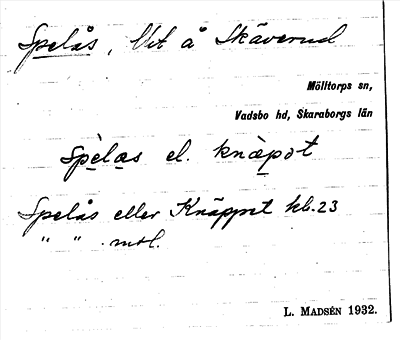 Spelås, Vit å Skäverud
Mölltorps sn,
Vadsbo hd, Skaraborgs län
spèlas el. knæpət
Spelås eller Knäppet kb. 23
" " mtl.
L. MADSÉN 1932.